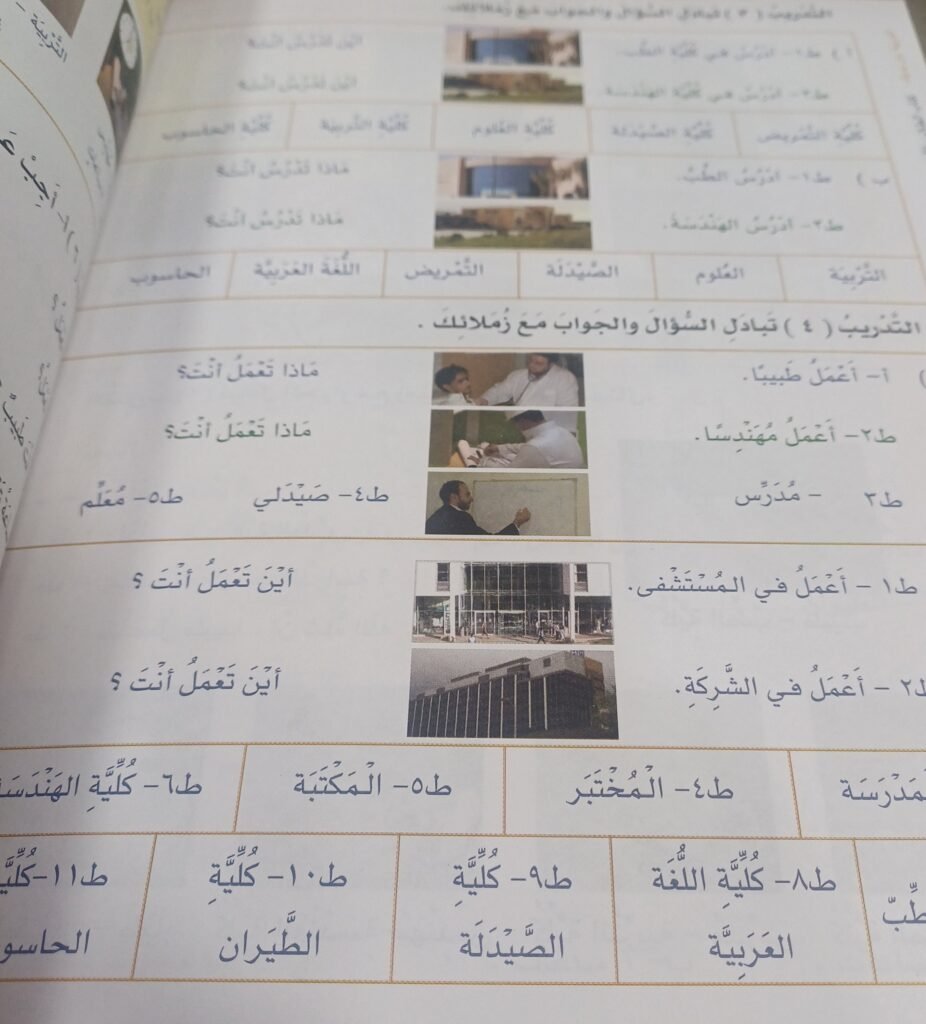 التَّدريبُ ( ٣ ) تَبادَلِ السُّؤالَ والجَوابَ مَعَ زُمَلائِكَ.
أ ) ط١- أدْرُسُ في كُلِّيَّةِ الطِّبِّ. أيْنَ تَدْرُسُ أنْتَ؟
ط٢- أدْرُسُ في كُلِّيَّةِ الهَنْدَسَةِ. أيْنَ تَدْرُسُ أنْتَ؟
كُلِّيَّة التَّمْريض كُلِّيَّة الصَّيْدَلَة كُلِّيَّة العُلوم كُلِّيَّة التَّرْبِيَة كُلِّيَّة الحاسوب
ب ) ط١- أدْرُسُ الطِّبَّ. ماذا تَدْرُسُ أنْتَ؟
ط٢- أدْرُسُ الهَنْدَسَةَ. ماذا تَدْرُسُ أنْتَ؟
التَّرْبِيَة العُلوم الصَّيْدَلَة التَّمْريض اللُّغَة العَرَبِيَّة الحاسوب
التَّدْريبُ ( ٤ ) تَبادَلِ السُّؤالَ والجَوابَ مَعَ زُمَلائِكَ .
أ- أَعْمَلُ طَبيبًا. ماذا تَعْمَلُ أنْتَ؟
ط٢- أَعْمَلُ مُهَنْدِسًا. ماذا تَعْمَلُ أنْتَ؟
ط٣ - مُدَرِّس ط٤- صَيْدَلي ط٥- مُعَلِّم
ط١ - أَعْمَلُ في المُسْتَشْفى. أيْنَ تَعْمَلُ أنْتَ ؟
ط٢ - أَعْمَلُ في الشَّرِكَةِ. أيْنَ تَعْمَلُ أنْتَ ؟
المَدْرَسَة ط٤- الْمُخْتَبَر ط٥- الْمَكْتَبَة ط٦- كُلِّيَّةِ الهَنْدَسَة
ط٨- كُلِّيَّةِ اللُّغَة ط٩- كُلِّيَّةِ ط١٠- كُلِّيَّةِ ط١١-
العَرَبِيَّة الصَّيْدَلَة الطَّيَران